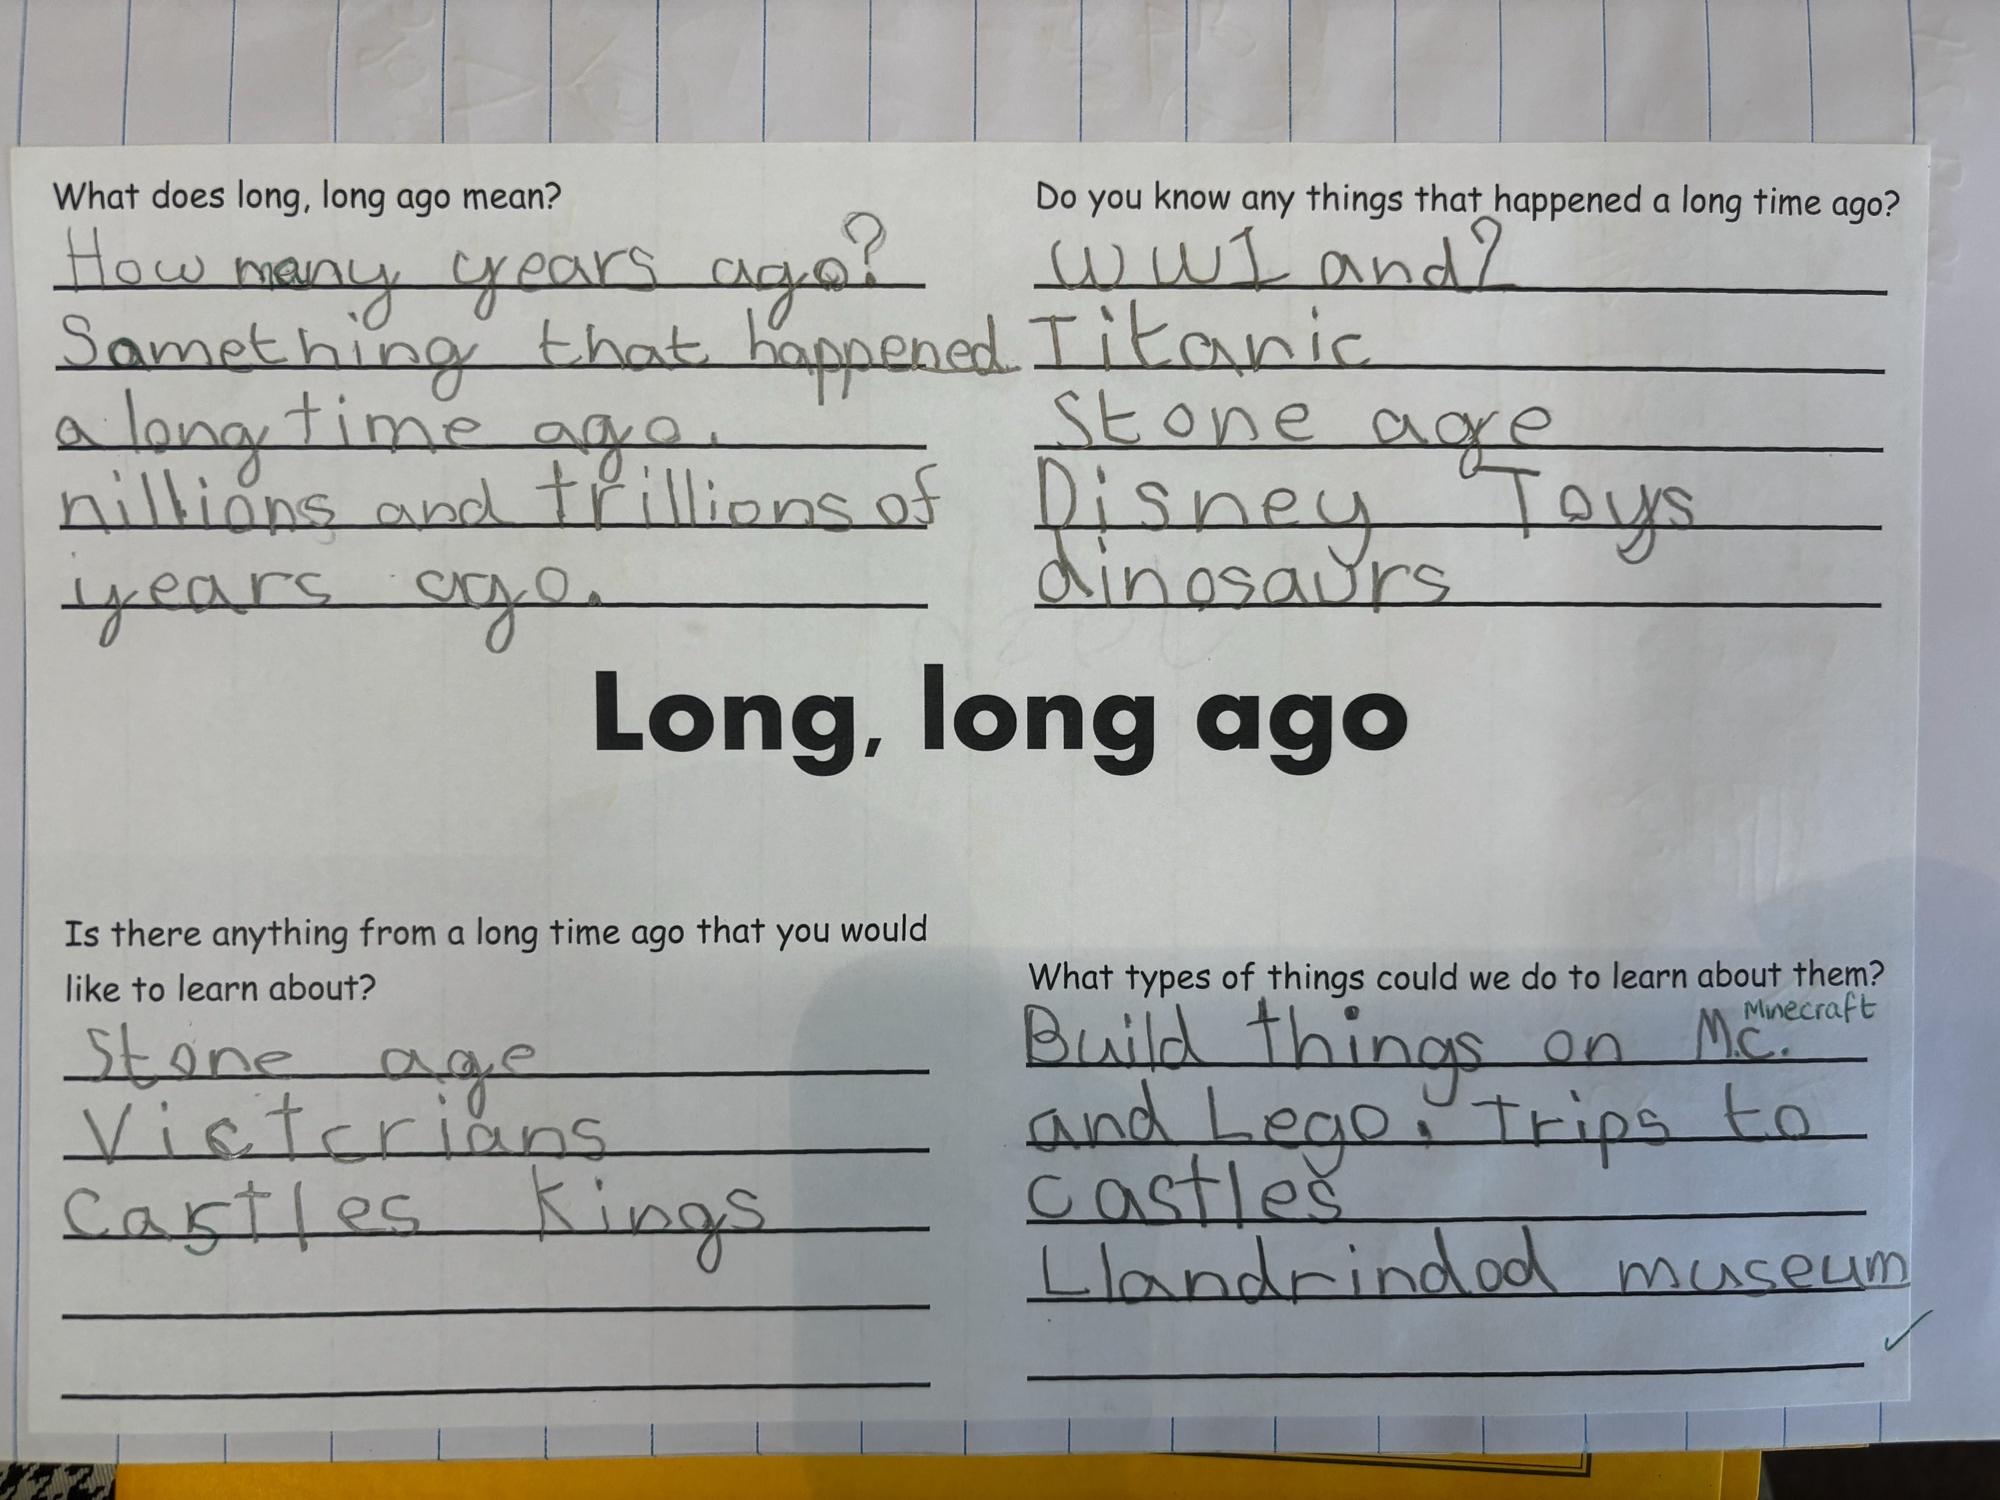 What does long, long ago mean?
How many years ago?
Something that happened
a long time ago.
nillions and trillions of
years ago.
Do you know any things that happened a long time ago?
WW1 and 2
Titanic
Stone age
Disney Toys
dinosaurs
Long, long ago
Is there anything from a long time ago that you would
like to learn about?
Stone age
Victorians
Castles Kings
What types of things could we do to learn about them?
Minecraft
Build things on M.c.
and Lego. Trips to
castles
Llandrindod museum